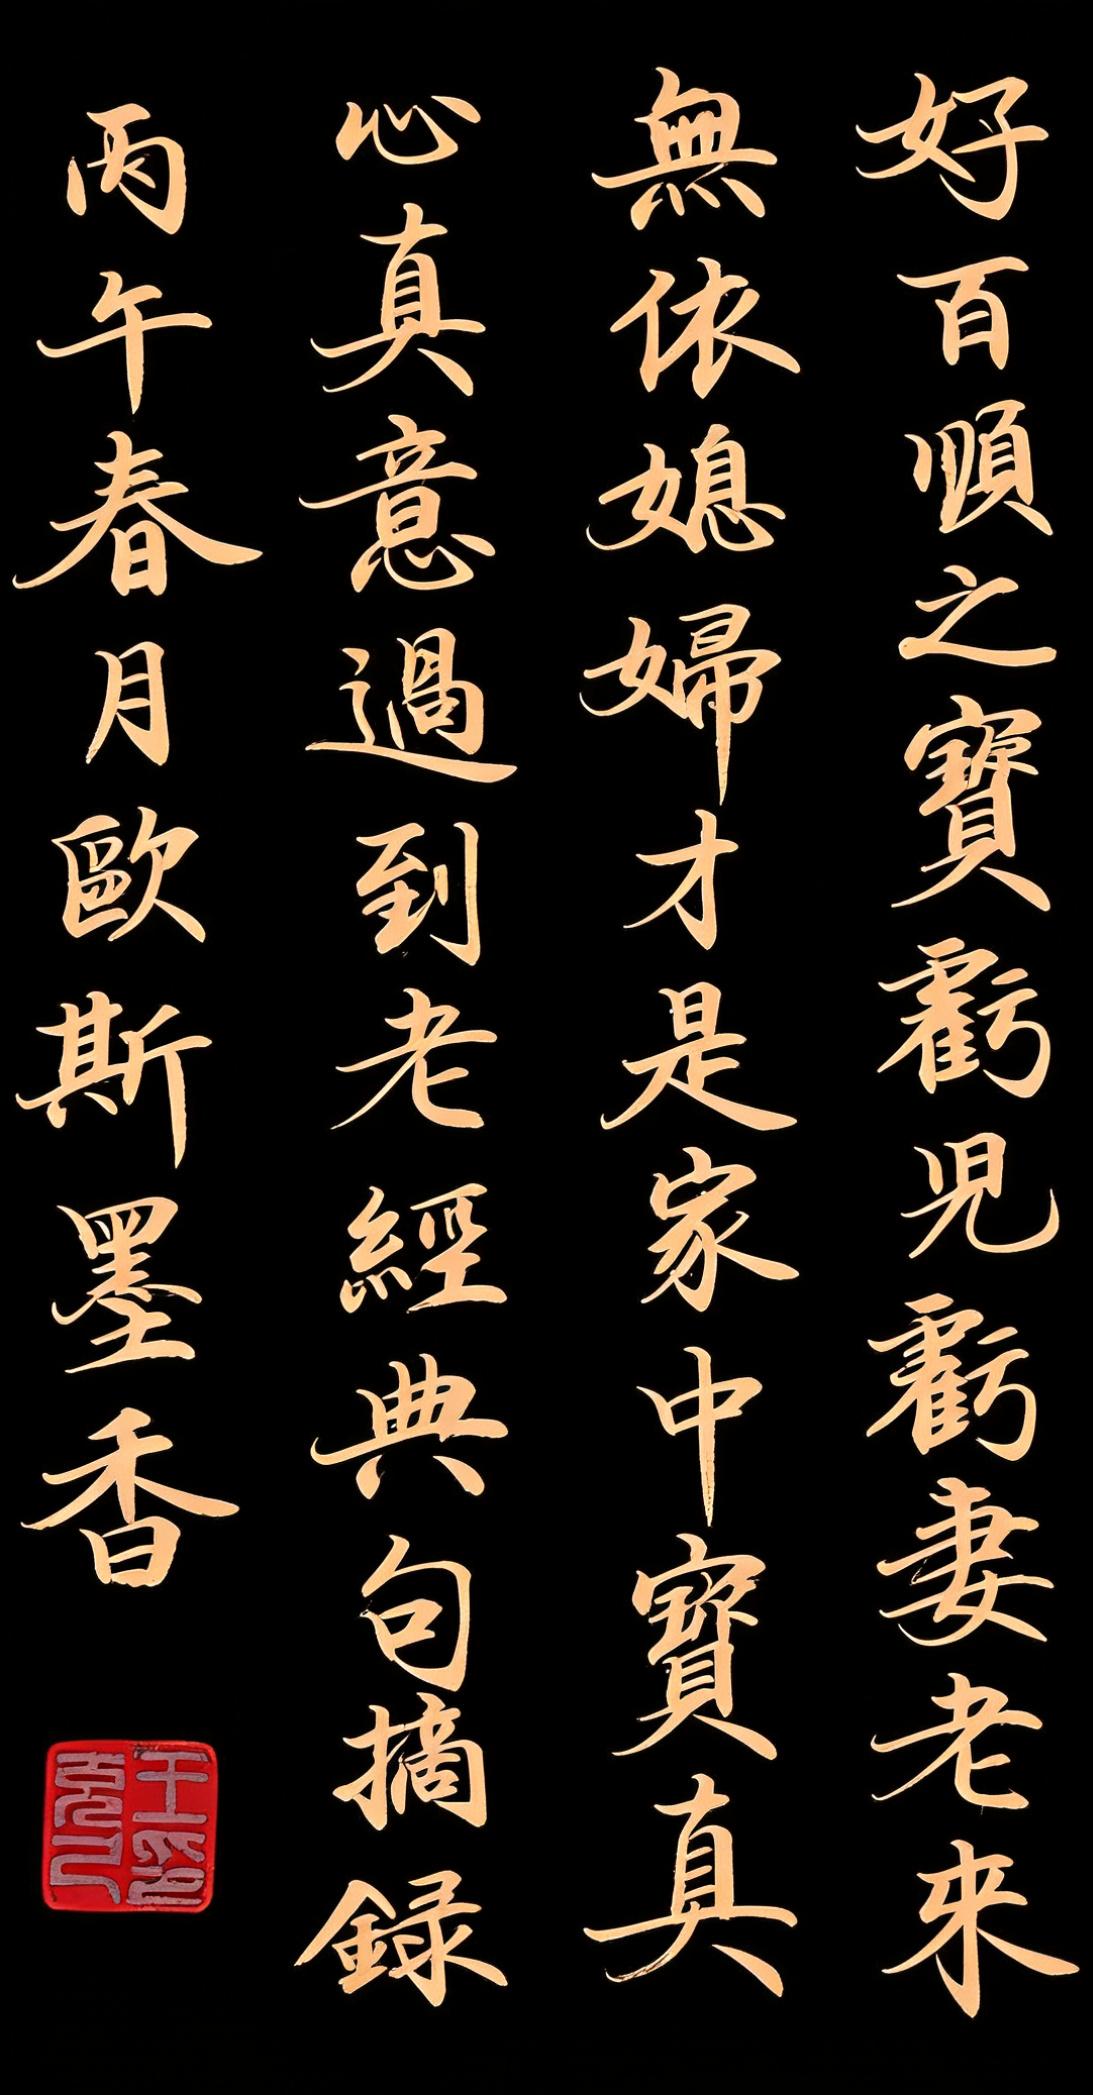 好百順之寶虧兒虧妻老來
無依媳婦才是家中寶真
心真意過到老經典句摘録
丙午春月歐斯墨香
王印